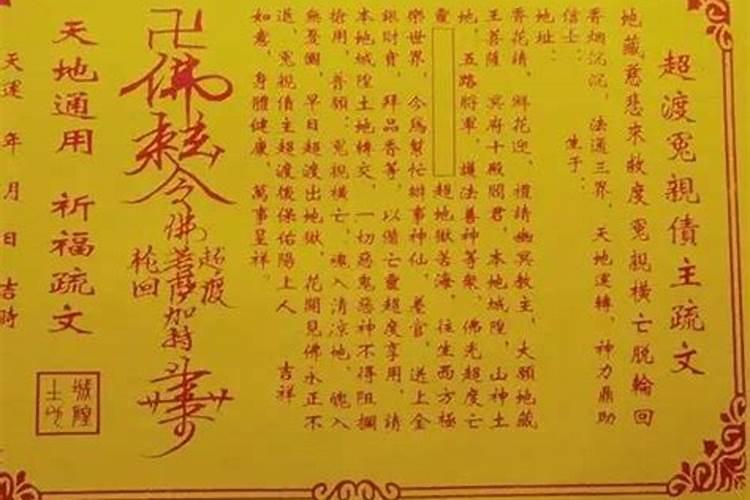 超渡冤親債主疏文
地藏慈悲來救度冤親橫亡脫輪回
香烟沉沉，法通三界，天地運轉，神力鼎助
信士：　生于：
地址：
香花請，鮮花迎，禮請幽冥教主，大願地藏
王菩薩　冥府十殿閻君，本地城隍，山神土
地，五路將軍，護法善神等衆，佛光超度亡
靈　超地獄苦海，往生西方極
樂世界，今爲幫忙辦事神仙，差官，送上金
銀財寶，拜品香等，以備亡靈超度享用，請
本地城隍土地轉交，一切惡鬼惡神不得阻攔
搶用，普願：冤親橫亡，魂入清凉地，魄入
無憂國，早日超渡出地獄，花開見佛永正不
退，冤親債主超渡後保佑陽上人　吉祥
如意，身體健康，萬事呈祥。
卍佛
敕令
佛菩薩加持
超度
輪回
天地通用　祈福疏文
城隍
土地
天運　年　月　日　吉時